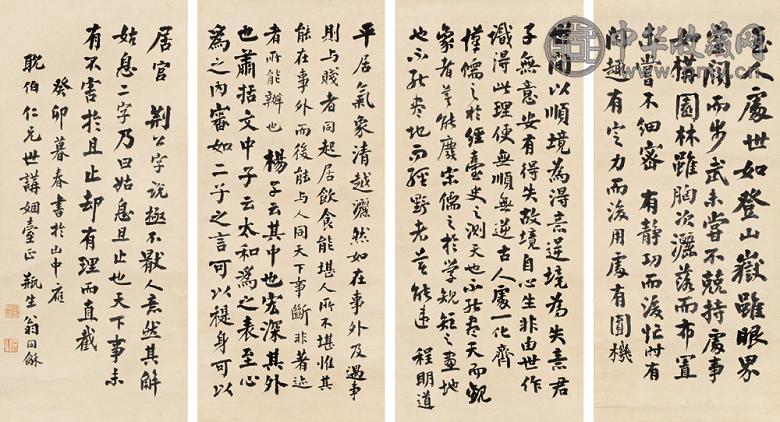 至人處世如登山嶽雖眼界
空闊而步武未嘗不兢持處事
如構園林雖胸次灑落而布置
未嘗不細密 有靜功而後忙時有
閒趣有定力而後用處有圓機
世間以順境為得意逆境為失意君
子無意安有得失故境自心生非由世作
識得此理便無順無逆古人處一化齊
漢儒之於經臺史之測天也不能盡天而觀
象者莫能廢宋儒之於學規矩之畫地
也不能盡地而經野者莫能違 程明道
平居氣象清越灑然如在事外及遇事
則與賤者同起居飲食能堪人所不堪惟其
能在事外而後能與人同天下事斷非著迹
者所能辦也 楊子云其中也宏深其外
也肅括文中子云太和為之表至心
為之內審如二子之言可以褆身可以
居官 荊公字說極不厭人意然其解
姑息二字乃曰姑息且止也天下事未
有不害於且止却有理而直截
癸卯暮春書於山中應
耽伯仁兄世講姻臺正 瓶生翁同龢
中华收藏网